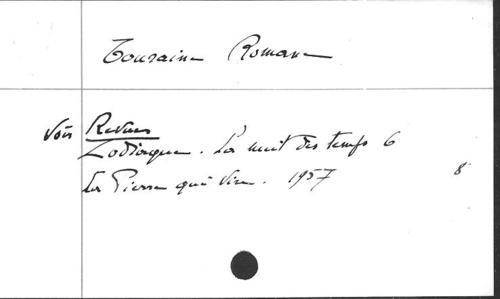 Touraine Romane
Voir Revues
Zodiaque. La nuit des temps 6
La Pierre qui Vire. 1957
8